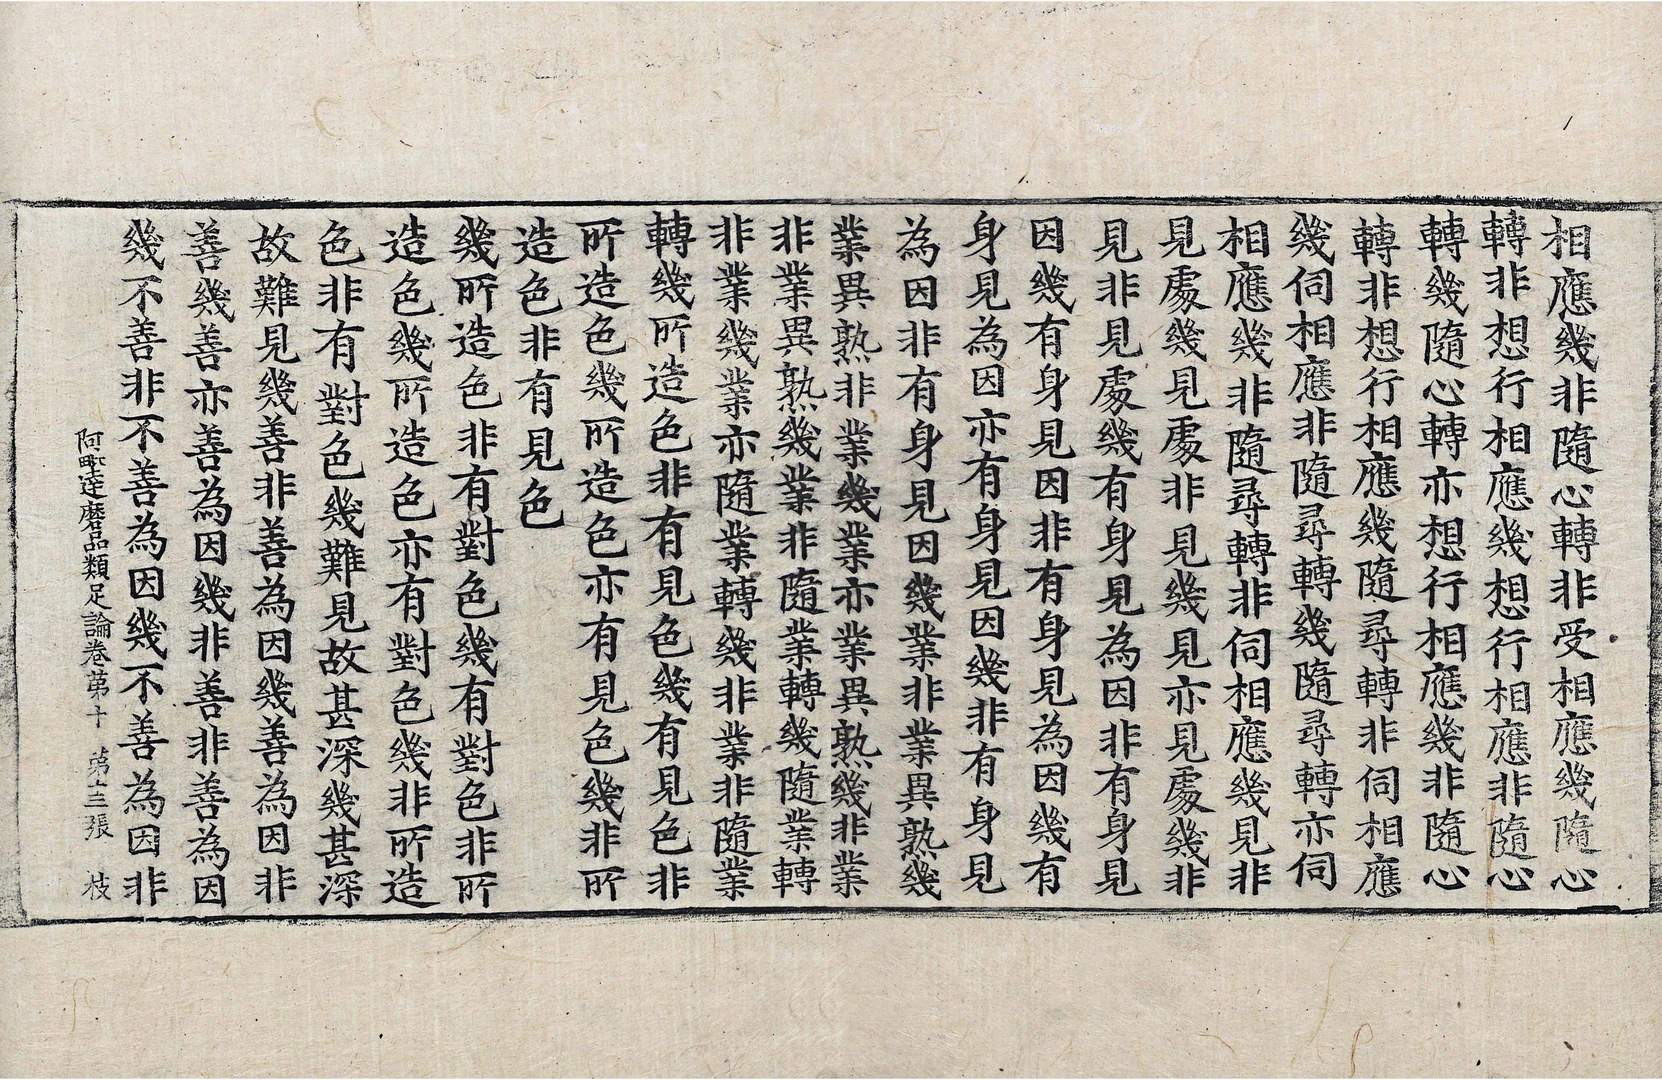 相應幾非隨心轉非受相應幾隨心
轉非想行相應幾想行相應非隨心
轉幾隨心轉亦想行相應幾非隨心
轉非想行相應幾隨尋轉非伺相應
幾伺相應非隨尋轉幾隨尋轉亦伺
相應幾非隨尋轉非伺相應幾見非
見處幾見處非見幾見亦見處幾非
見非見處幾有身見為因非有身見
因幾有身見因非有身見為因幾有
身見為因亦有身見因幾非有身見
為因非有身見因幾業非業異熟幾
業異熟非業幾業亦業異熟幾非業
非業異熟幾業非隨業轉幾隨業轉
非業幾業亦隨業轉幾非業非隨業
轉幾所造色非有見色幾有見色非
所造色幾所造色亦有見色幾非所
造色非有見色
幾所造色非有對色幾有對色非所
造色幾所造色亦有對色幾非所造
色非有對色幾難見故甚深幾甚深
故難見幾善非善為因幾善為因非
善幾善亦善為因幾非善非善為因
幾不善非不善為因幾不善為因非
阿毘達磨品類足論卷第十 第十三張 枝